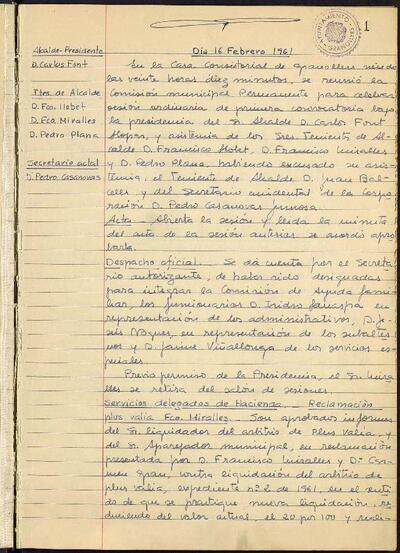 1
AYUNTAMIENTO
GRANOLLERS
Día 16 Febrero 1961
Alcalde-Presidente
D. Carlos Font
Ttes. de Alcalde
D. Fco. Llobet
D. Fco. Miralles
D. Pedro Plana
Secretario actal
D. Pedro Casanovas
En la Casa Consistorial de Granollers siendo
las veinte horas diez minutos, se reunió la
Comisión municipal Permanente para celebrar
sesión ordinaria de primera convocatoria bajo
la presidencia del Sr. Alcalde D. Carlos Font
y asistencia de los Sres. Teniente de Al-
calde D. Francisco Llobet, D. Francisco Miralles
y D. Pedro Plana, habiendo excusado su asis-
tencia, el Teniente de Alcalde D. Juan Bal-
cells y del Secretario accidental de la Corpo-
ración D. Pedro Casanovas
Acta.- Abierta la sesión y leida la minuta
del acta de la sesión anterior se acordó apro-
barla.
Despacho oficial.- Se dá cuenta por el Secreta-
rio autorizante, de haber sido designados
para integrar la Comisión de Ayuda fami-
liar, los funcionarios D. Isidro en
representación de los administrativos, D. Je-
sús en representación de los subalter-
nos y D. Jaime Viñallonga de los servicios es-
peciales.
Previo permiso de la Presidencia, el Sr. Mira-
lles se retira del salón de sesiones.
Servicios delegados de Hacienda.- Reclamación
plus valia Fco. Miralles.- Son aprobados informes
del Sr. liquidador del arbitrio de Plus Valía, y
del Sr. Aparejador municipal, en reclamación
presentada por D. Francisco Miralles y Dª Car-
men Grau, contra liquidación del arbitrio de
plus valía, expediente nº 2 de 1961, en el senti-
do de que se practique nueva liquidación, re-
duciendo del valor actual, el 20 por 100 y reali-